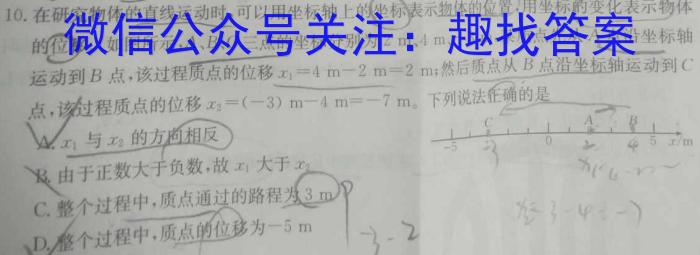 10. 在研究物体的直线运动时,可以用坐标轴上的坐标表示物体的位置,用坐标的变化表示物体
的位
微信公众号关注：趣找答案
m、4 m
坐标轴
运动到 B 点,该过程质点的位移 x₁=4 m-2 m=2 m;然后质点从 B 点沿坐标轴运动到 C
点,该过程质点的位移 x₂=(-3) m-4 m=-7 m。下列说法正确的是
A. x₁ 与 x₂ 的方向相反
B. 由于正数大于负数,故 x₁ 大于 x₂
C. 整个过程中,质点通过的路程为 3 m
D. 整个过程中,质点的位移为-5 m
C A B
-5 0 5 x/m
-3 2 4
-3-2